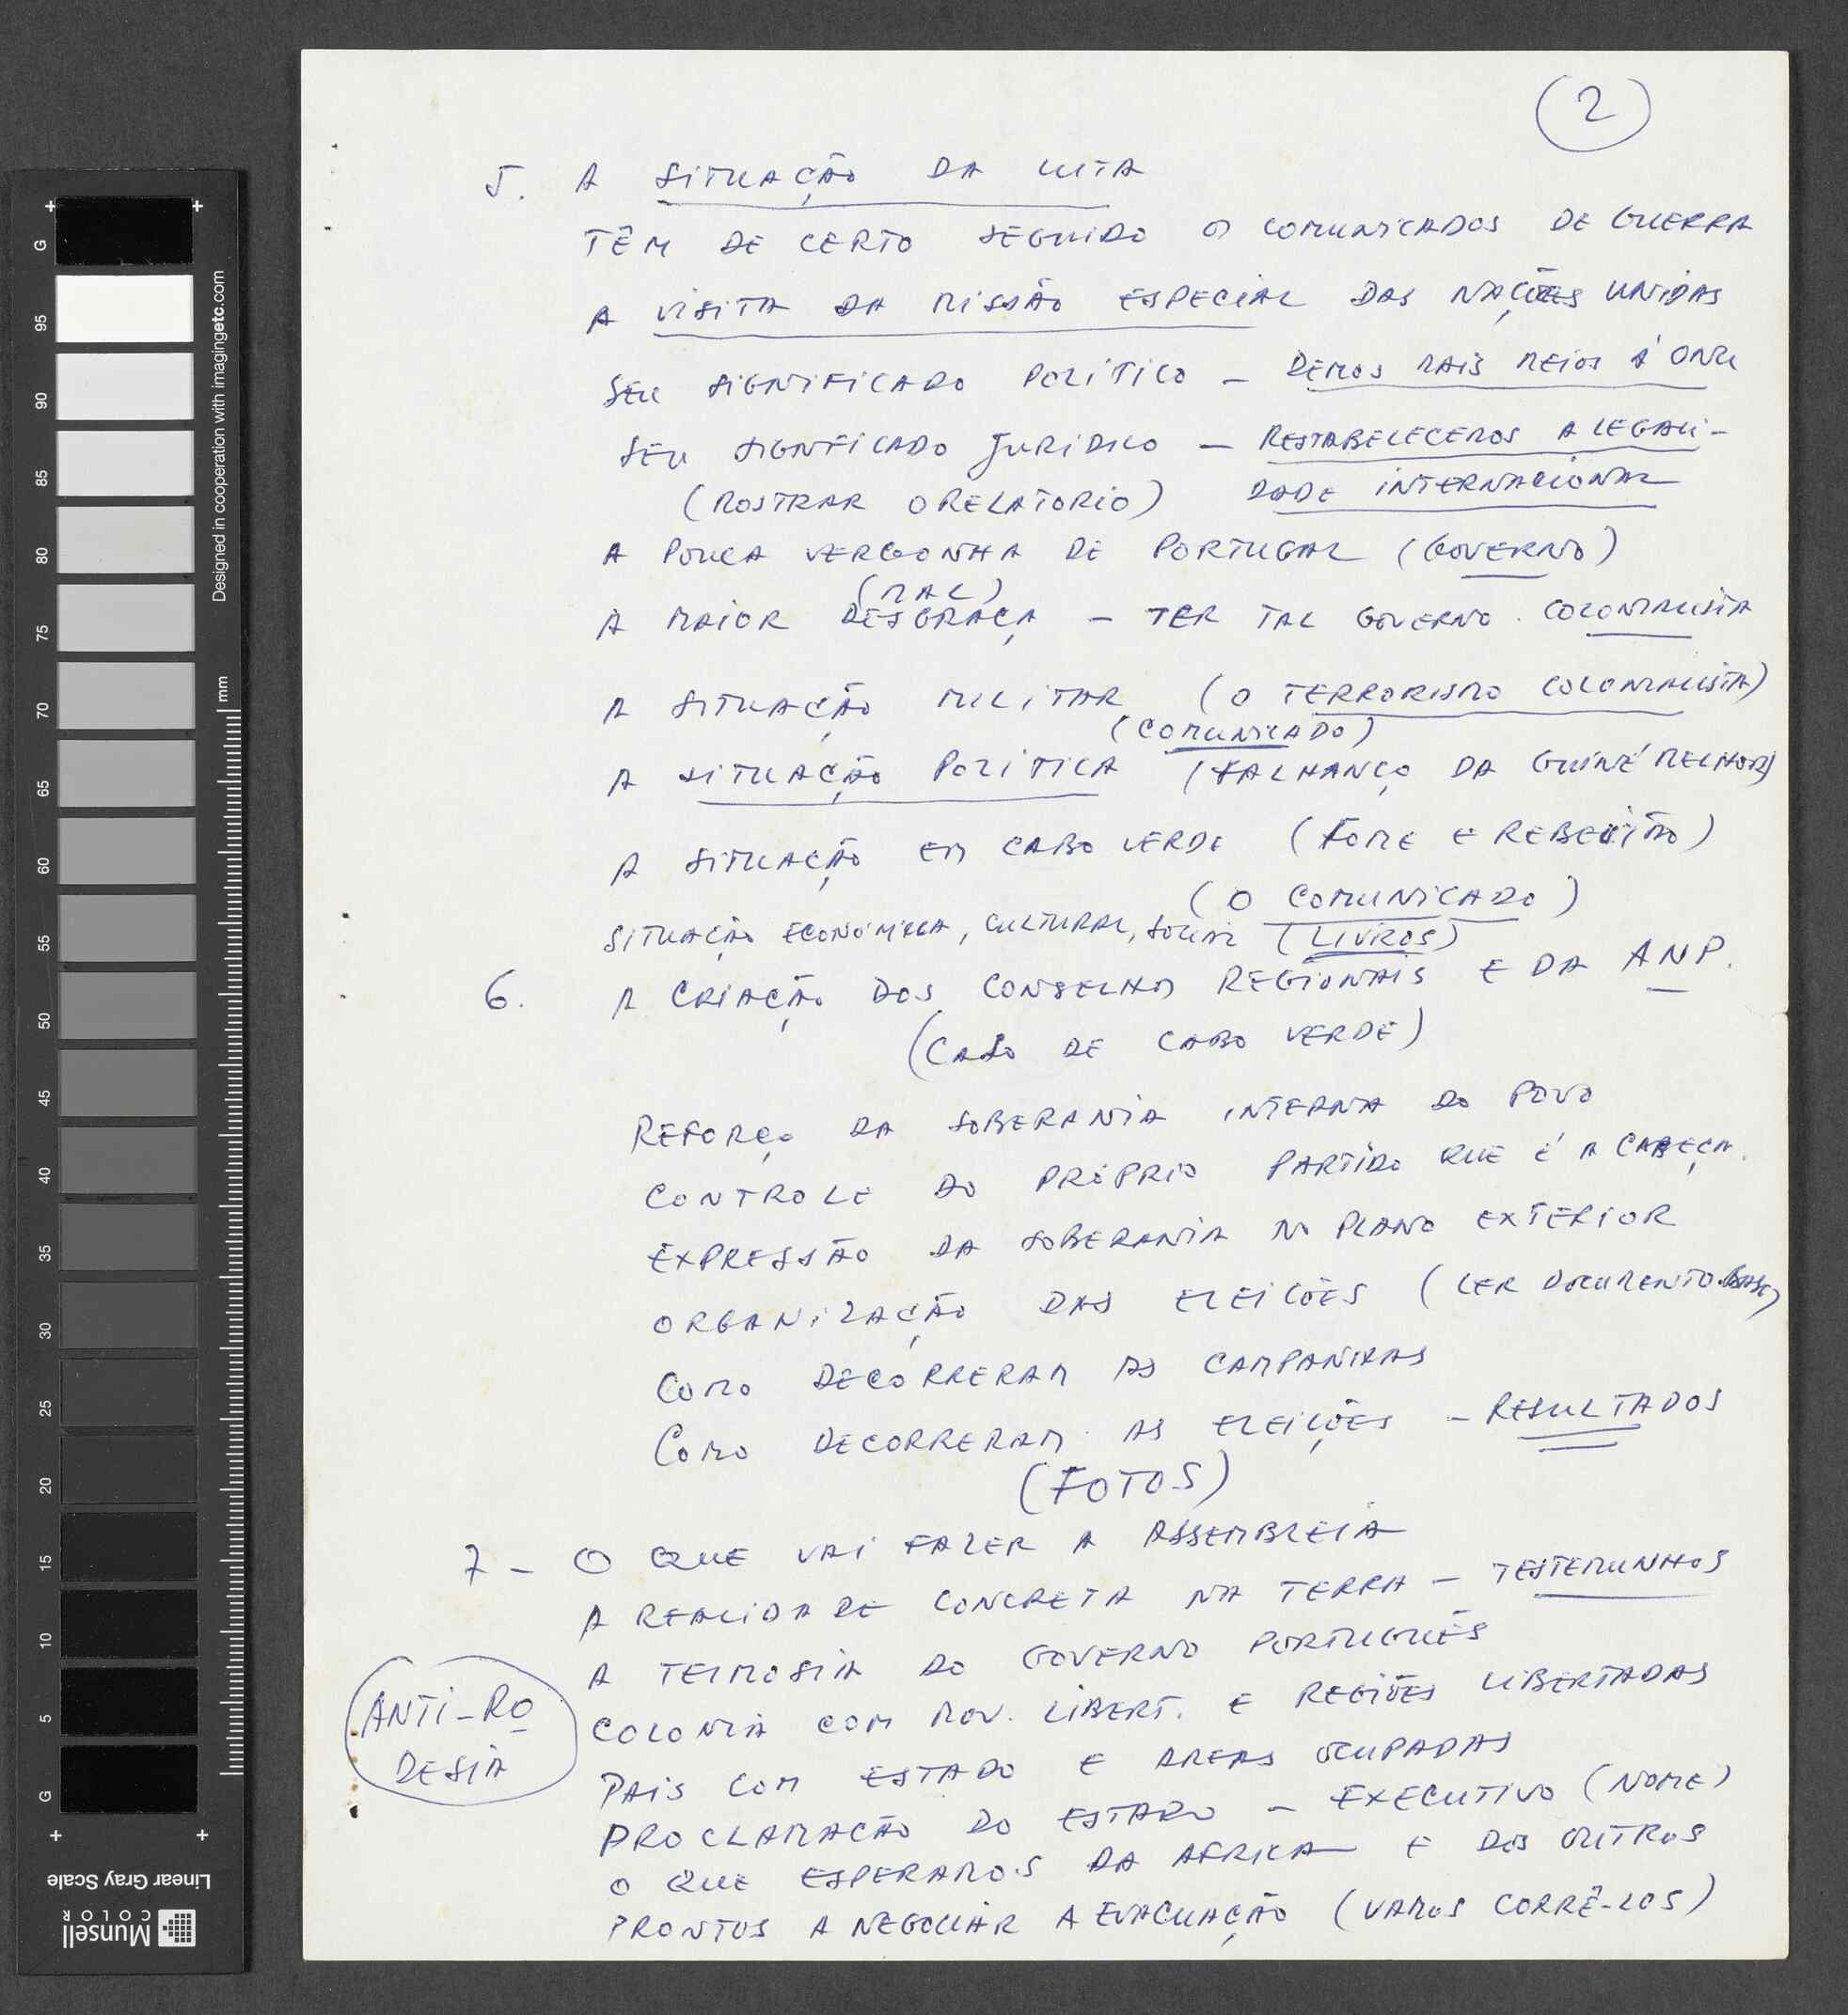 2
5. A SITUAÇÃO DA LUTA
TÊM DE CERTO SEGUIDO OS COMUNICADOS DE GUERRA
A VISITA DA MISSÃO ESPECIAL DAS NAÇÕES UNIDAS
SEU SIGNIFICADO POLITICO – DEMOS MAIS MEIOS À ONU
SEU SIGNFICADO JURIDICO – RESTABELECEMOS A LEGALI-
(MOSTRAR O RELATORIO) DADE INTERNACIONAL
A POUCA VERGONHA DE PORTUGAL (GOVERNO)
(MAL)
A MAIOR DESGRAÇA – TER TAL GOVERNO. COLONIALISTA
A SITUAÇÃO MILITAR (O TERRORISMO COLONIALISTA)
(COMUNICADO)
A SITUAÇÃO POLITICA (FALHANÇO DA GUINÉ MELHOR)
A SITUAÇÃO EM CABO VERDE (FOME E REBELIÃO)
(O COMUNICADO)
SITUAÇÃO ECONÓMICA, CULTURAL, SOCIAL (LIVROS)
6. A CRIAÇÃO DOS CONSELHOS REGIONAIS E DA ANP.
(CASO DE CABO VERDE)
REFORÇO DA SOBERANIA INTERNA DO POVO
CONTROLE DO PRÓPRIO PARTIDO QUE É A CABEÇA.
EXPRESSÃO DA SOBERANIA NO PLANO EXTERIOR
ORGANIZAÇÃO DAS ELEIÇÕES (LER DOCUMENTO BASE)
COMO DECORRERAM AS CAMPANHAS
COMO DECORRERAM AS ELEIÇÕES – RESULTADOS
(FOTOS)
7 – O QUE VAI FAZER A ASSEMBLEIA
A REALIDADE CONCRETA NA TERRA – TESTEMUNHOS
A TEIMOSIA DO GOVERNO PORTUGUÊS
ANTI-RO
DESIA
COLONIA COM MOV. LIBERT. E REGIÕES LIBERTADAS
PAIS COM ESTADO E AREAS OCUPADAS
PROCLAMAÇÃO DO ESTADO – EXECUTIVO (NOME)
O QUE ESPERAMOS DA AFRICA E DOS OUTROS
PRONTOS A NEGOCIAR A EVACUAÇÃO (VAMOS CORRÊ-LOS)
G 95 90 85 80 75 70 65 60 55 50 45 40 35 30 25 20 15 10 5 G
Designed in cooperation with imagingetc.com
mm
Linear Gray Scale
Munsell
COLOR